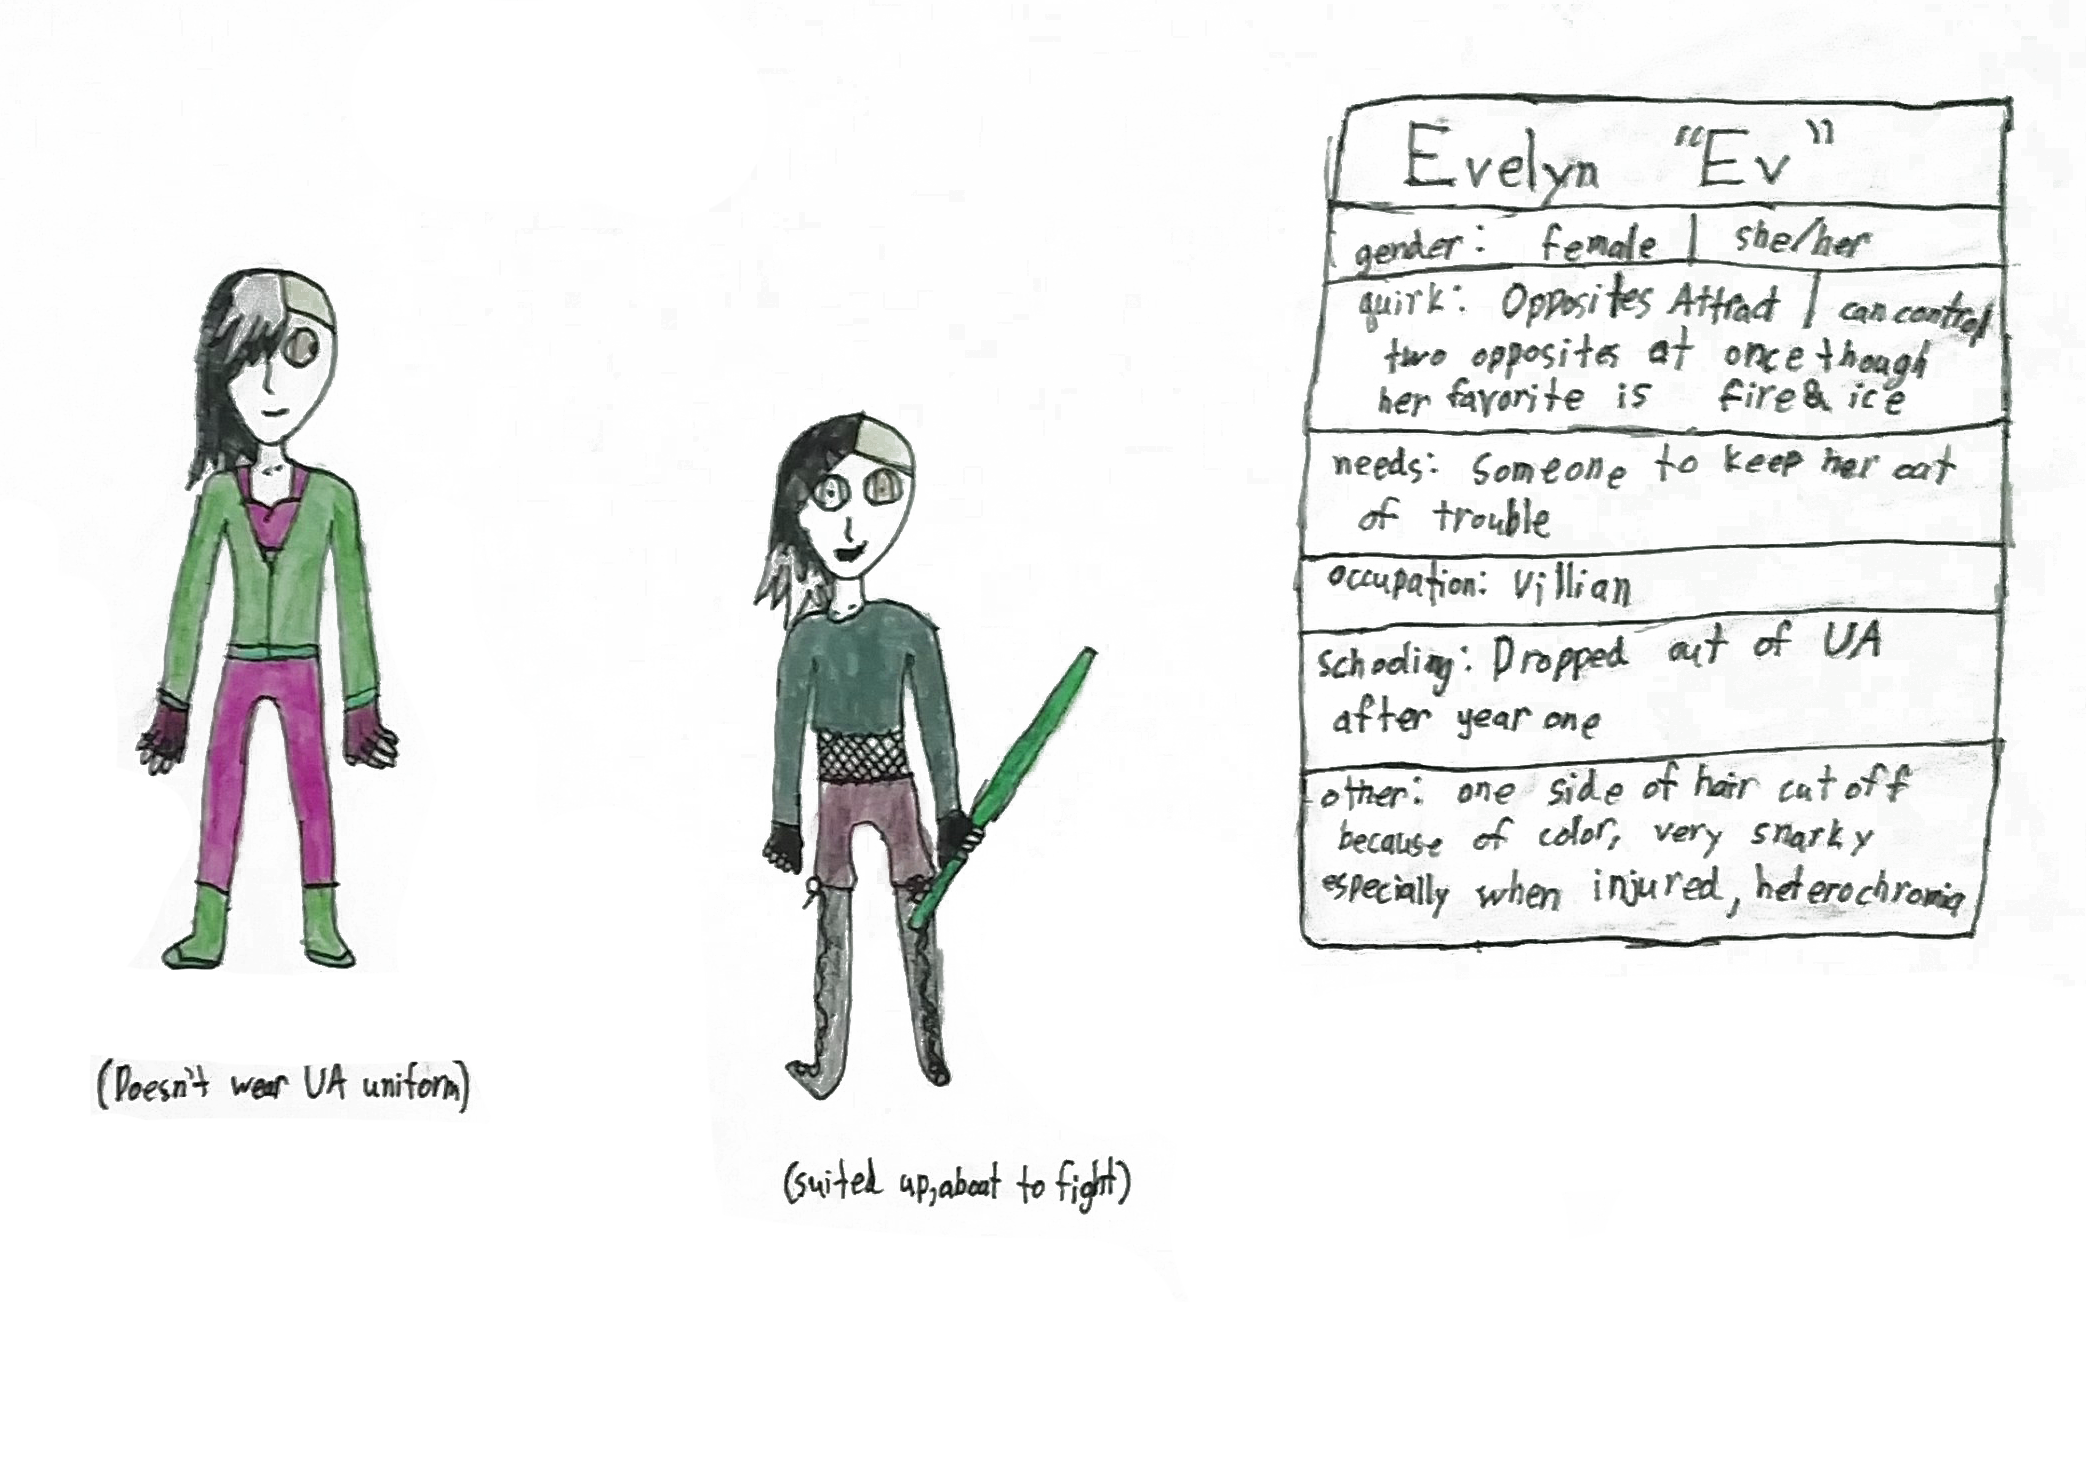 Evelyn "Ev"
gender: female | she/her
quirk: Opposites Attract | can control
two opposites at once though
her favorite is fire & ice
needs: someone to keep her out
of trouble
occupation: Villian
schooling: Dropped out of UA
after year one
other: one side of hair cut off
because of color, very snarky
especially when injured, heterochromia
(Doesn't wear UA uniform)
(suited up, about to fight)